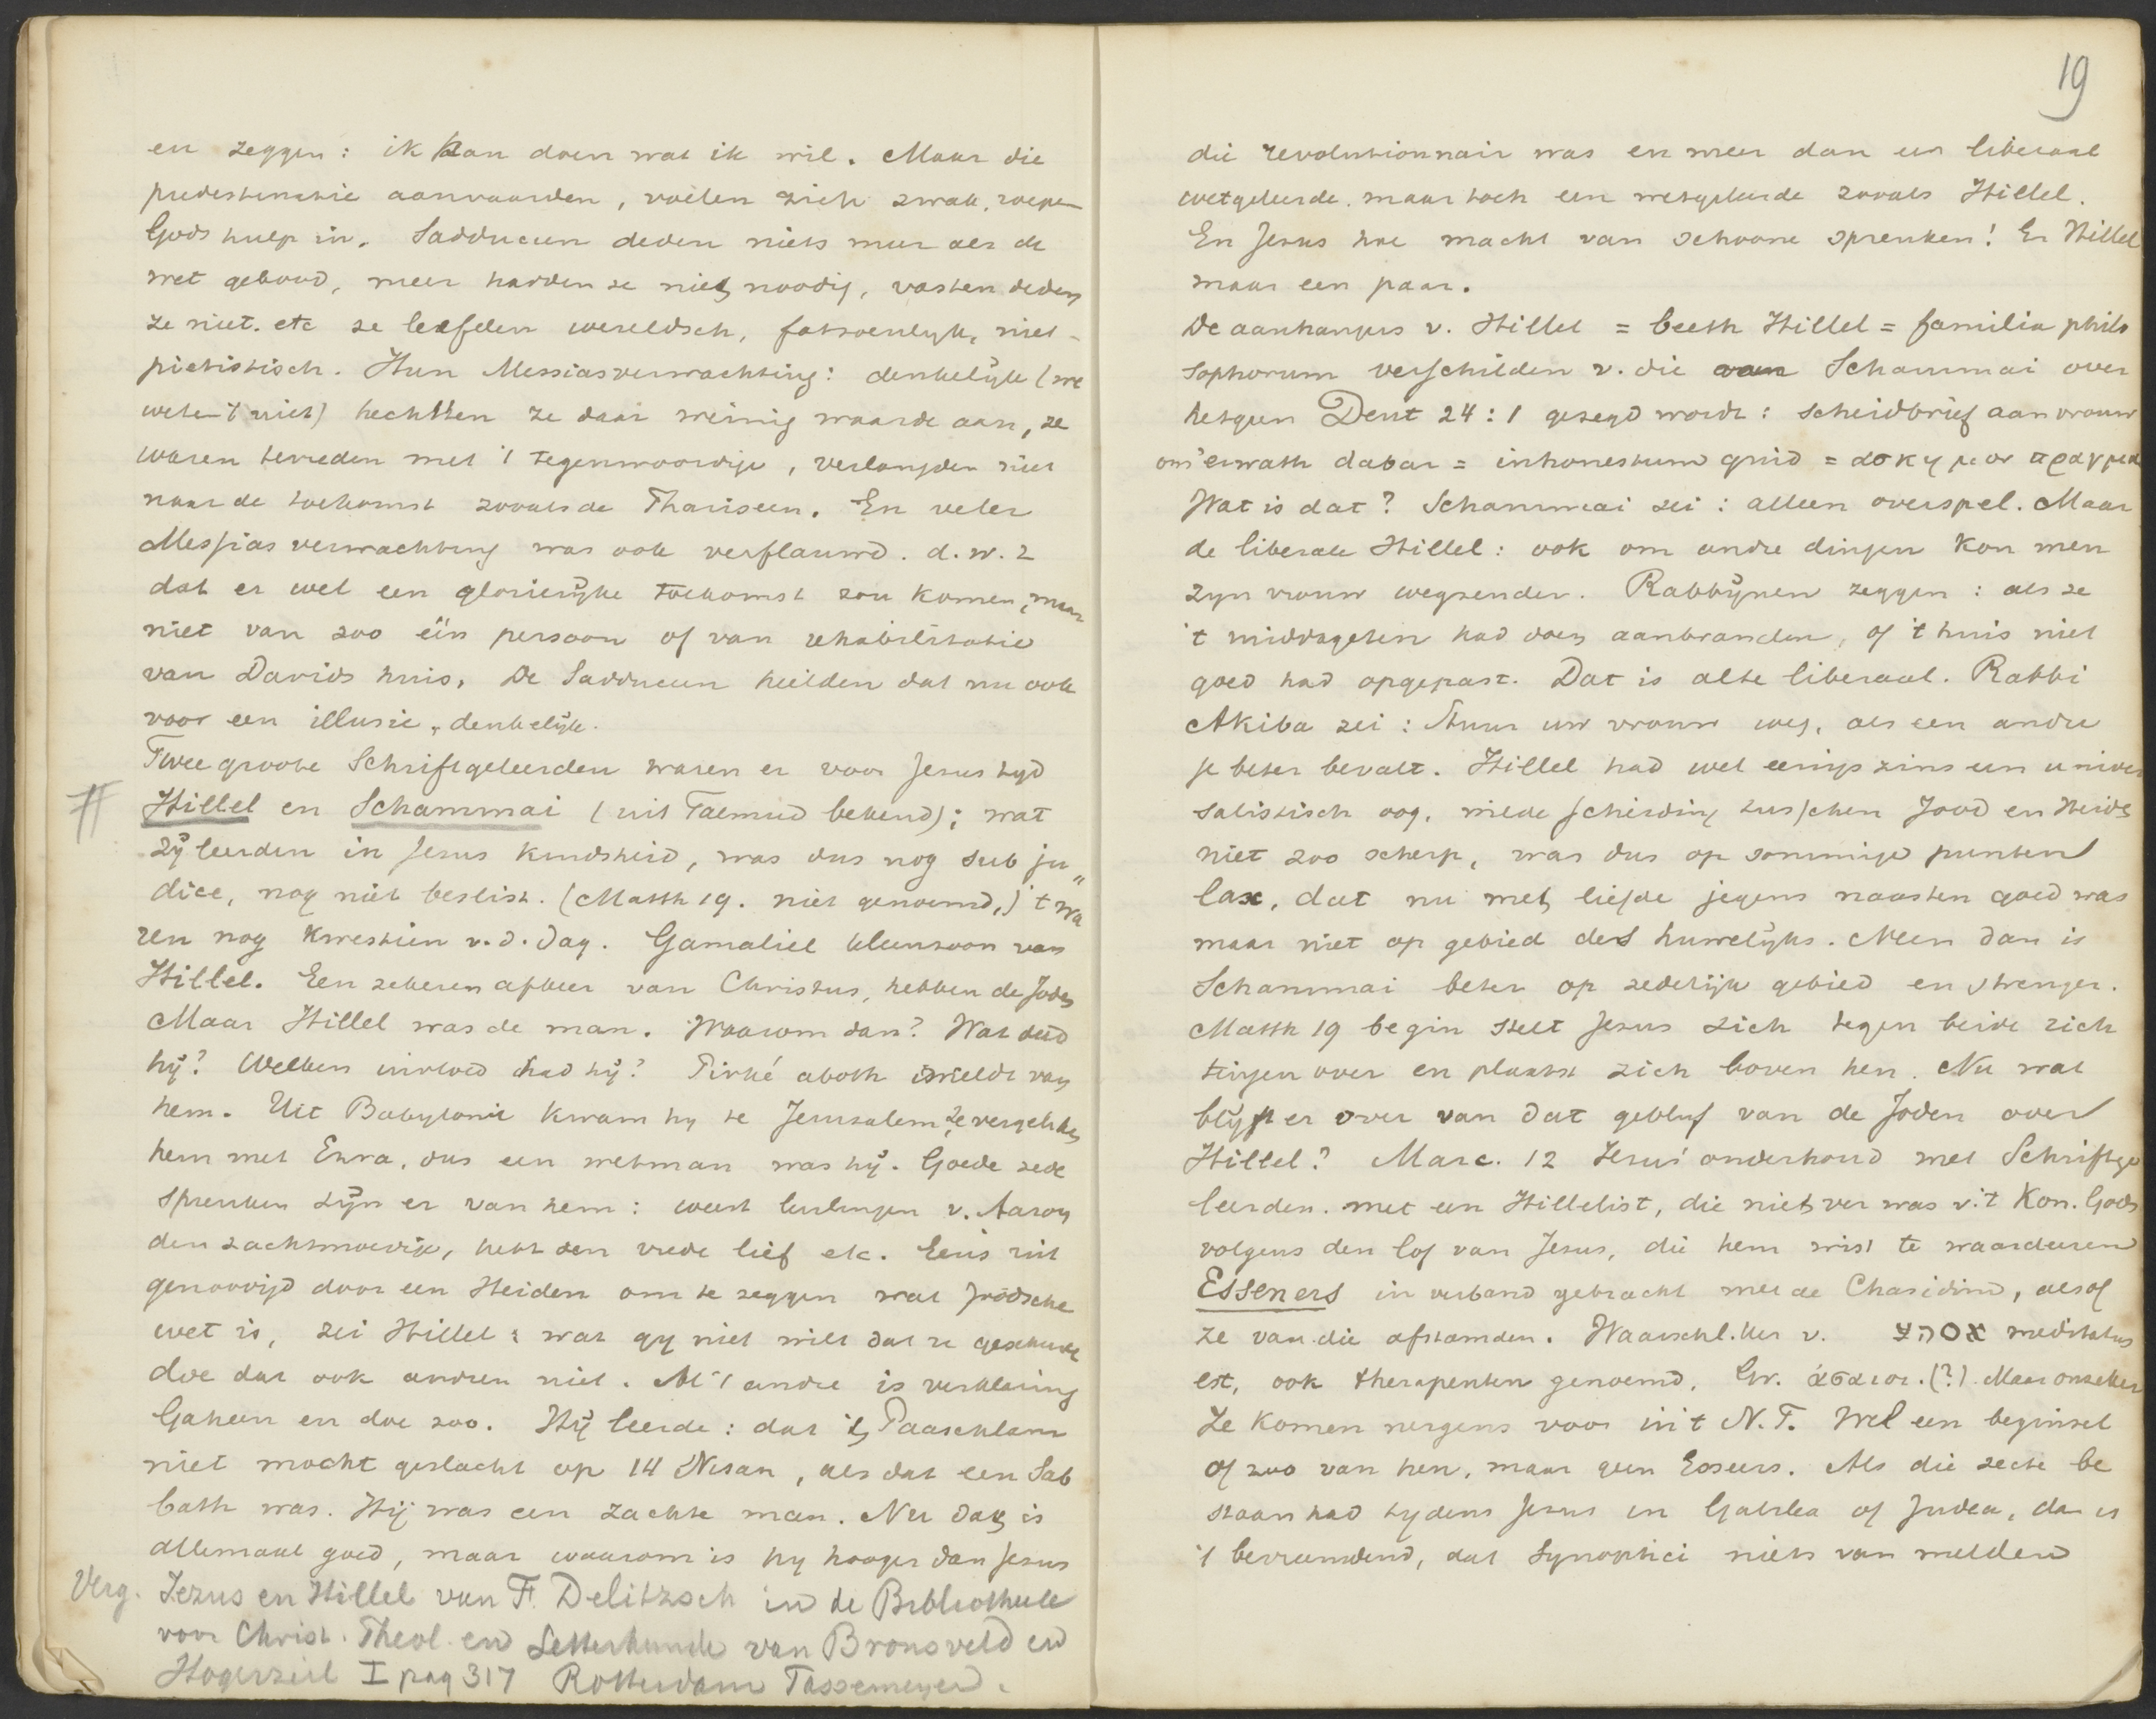 en zeggen: ik kan doen wat ik wil. Maar die
predestinatie aanvaarden, voelen zich zwak, roepen
Gods hulp in. Sadduceen deden niets meer als de
wet gebood, meer hadden ze niet noodig, vasten deden
ze niet. etc ze leefden wereldsch, fatsoenlyk, niet
piëtistisch. Hun Messiasverwachting: denkelijk (we
weten 't niet) hechtten ze daar weinig waarde aan, ze
waren tevreden met 't tegenwoordige, verlangden niet
naar de toekomst zooals de Phariseen. En veler
Messias verwachting was ook verflauwd. d.w.z
dat er wel een glorierijke toekomst zou komen, maar
niet van zoo één persoon of van rehabilitatie
van Davids huis. De Sadduceen hielden dat nu ook
voor een illusie, denkelijk.
Twee groote Schriftgeleerden waren er voor Jesus tyd
Hillel en Schammai (uit Talmud bekend); wat
zij leerden in Jesus kindsheid, was dus nog sub ju„
dice, nog niet beslist. (Matth 19. niet genoemd,) 't wa
ren nog kwestiën v.d. dag. Gamaliel kleinzoon van
Hillel. Een zekeren afkeer van Christus, hebben de Joden
Maar Hillel was de man. Waarom dan? Wat deed
hij? Welken invloed had hij? Pirké aboth vermeldt van
hem. Uit Babylonië kwam hy te Jerusalem, ze vergeleken
hem met Ezra, dus een wetman was hij. Goede zede
spreuken zijn er van hem: weest leerlingen v. Aaron
den zachtmoedige, hebt den vrede lief etc. Eens uit
genoodigd door een Heiden om te zeggen wat Joodsche
wet is, zei Hillel: wat gy niet wilt dat u geschiede
doe dat ook andren niet. Al 't andre is verklaring
Ga heen en doe zoo. Hij leerde: dat 't Paaschlam
niet mocht geslacht op 14 Nisan, als dat een Sab
bath was. Hij was een zachte man. Nu dat is
allemaal goed, maar waarom is hy hooger dan Jesus
Verg. Jezus en Hillel van F. Delitzsch in de Bibliotheek
voor Christ. Theol. en Letterkunde van Bronsveld en
Hogerzeil I pag 317 Rotterdam Tassemeyer.
19
die revolutionnair was en meer dan een liberaal
wetgeleerde. maar toch een wetgeleerde zooals Hillel.
En Jesus hoe macht van schoone spreuken! En Hillel
maar een paar.
De aanhangers v. Hillel = beeth Hillel = familia philo
sophorum verschilden v. die van Schammai over
hetgeen Deut 24:1 gezegd wordt: scheidbrief aan vrouw
om 'erwath dabar = inhonestum quid = ασκημον πραγμα
Wat is dat? Schammai zei: alleen overspel. Maar
de liberale Hillel: ook om andre dingen kon men
zyn vrouw wegzenden. Rabbijnen zeggen: als ze
't middageten had doen aanbranden, of 't huis niet
goed had opgepast. Dat is alte liberaal. Rabbi
Akiba zei: Stuur uw vrouw weg, als een andre
je beter bevalt. Hillel had wel eenigszins een univer
salistisch oog, wilde scheiding tusschen Jood en Heide
niet zoo scherp, was dus op sommige punten
lax, dat nu met liefde jegens naasten goed was
maar niet op gebied des huwelijks. Neen dan is
Schammai beter op zedelijk gebied en strenger.
Matth 19 begin stelt Jesus zich tegen beide rich
tingen over en plaatst zich boven hen. Nu wat
blyft er over van dat gebluf van de Joden over
Hillel? Marc. 12 Jesus' onderhoud met Schriftge
leerden. met een Hillelist, die niet ver was v. 't Kon. Gods
volgens den lof van Jesus, die hem wist te waardeeren
Esseners in verband gebracht met de Chasidim, alsof
ze van die afstamden. Waarschl. v. meditatus
est, ook therapeuten genoemd. Gr. (?) Maar onzeker
Ze komen nergens voor in 't N.T. Wel een beginsel
of zoo van hen, maar geen Esseers. Als die secte be
staan had tydens Jesus in Galilea of Judea, dan is
't bevreemdend, dat Synoptici niets van melden